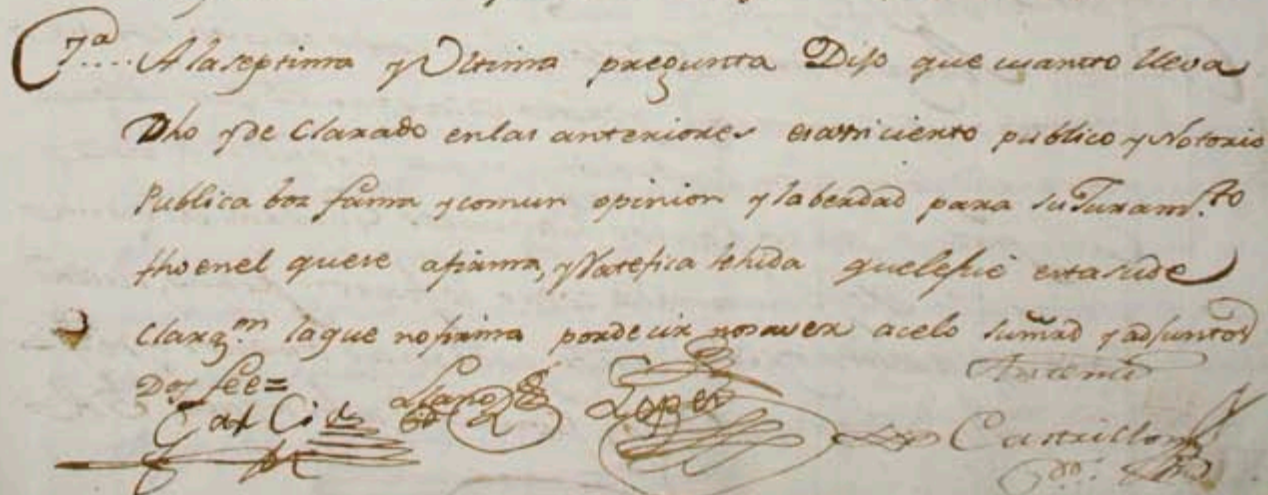 7ª.... A la septima y Ultima pregunta Dijo que cuanto lleva
Dho y de Clarado en las anteriores es assi cierto publico y Notorio
Publica boz fama y comun opinion y la berdad para su Juram.to
fho en el que se afirma, y Ratefica lehida que le fue esta su de
Claraz.on la que no firma por de cir no saver acelo su mrd y adjuntos
Doy fee=
Garcia Llano Lopez Ante mi
Castrillon